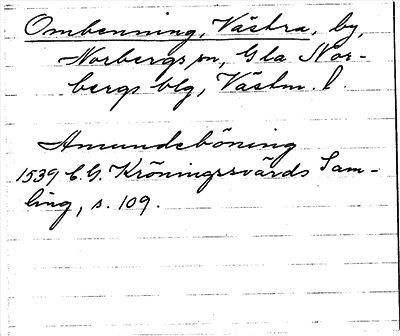 Ombenning, Västra, by,
Norbergs sn, Gla Nor-
bergs blg, Västm. l.
Amundeböning
1539 C.G. Kröningssvärds Sam-
ling, s. 109.